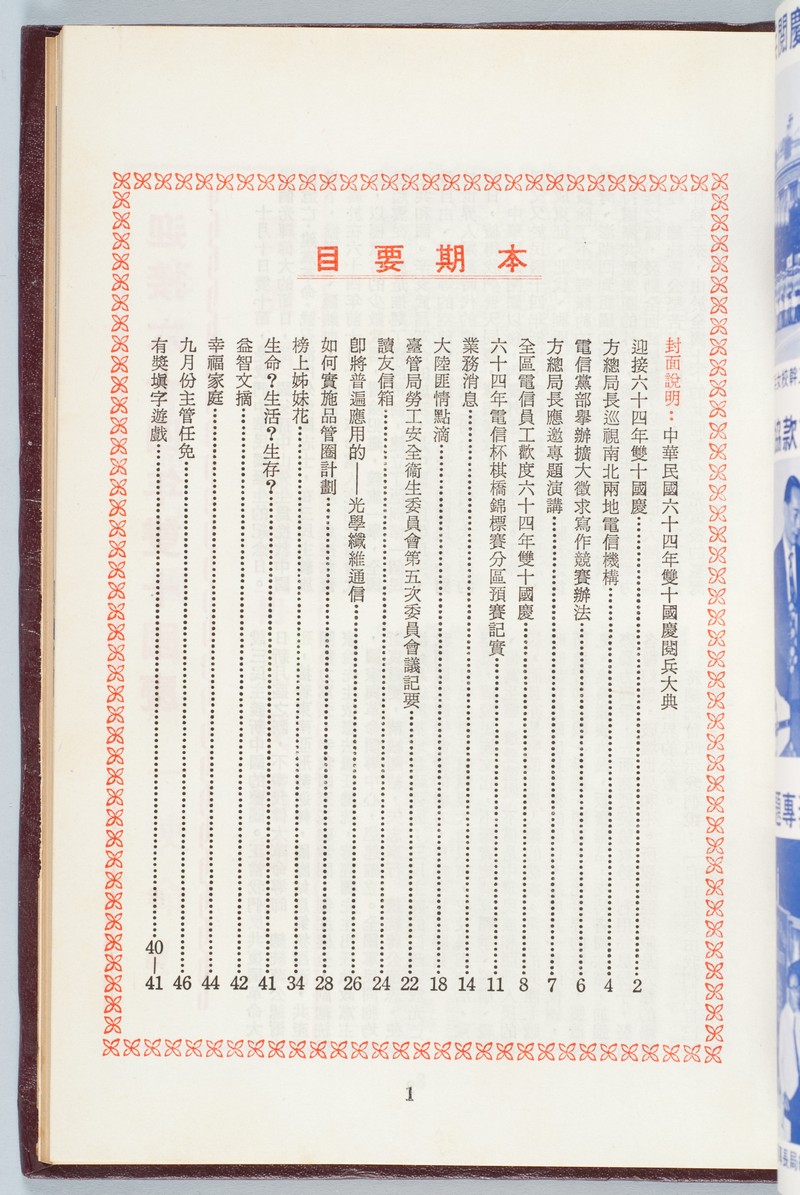 本期要目
封面說明：中華民國六十四年雙十國慶閱兵大典
迎接六十四年雙十國慶 2
方總局長巡視南北兩地電信機構 4
電信黨部舉辦擴大徵求寫作競賽辦法 6
方總局長應邀專題演講 7
全區電信員工歡度六十四年雙十國慶 8
六十四年電信杯棋橋錦標賽分區預賽記實 11
業務消息 14
大陸匪情點滴 18
臺管局勞工安全衞生委員會第五次委員會議記要 22
讀友信箱 24
卽將普遍應用的——光學纖維通信 26
如何實施品管圈計劃 28
榜上姊妹花 34
生命？生活？生存？ 41
益智文摘 42
幸福家庭 44
九月份主管任免 46
有獎塡字遊戲 40—41
1